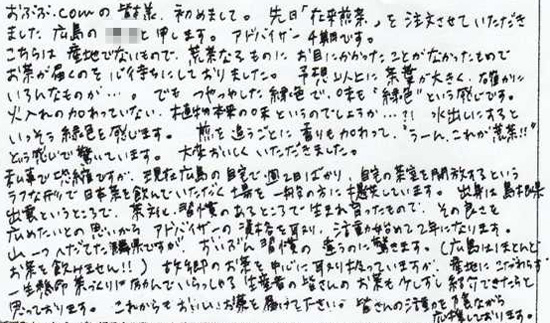 おぶぶ.comの皆様、初めまして。先日「在来煎茶」を注文させていただき
ました広島の と申します。アドバイザー4期です。
こちらは産地でないもので、荒茶なるものにお目にかかったことがなかったもので
お茶が届くのを心待ちにしておりました。予想以上に茶葉が大きく、確かに
いろんなものが…。でもつやつやした緑色で、味も"緑色"という感じです。
火入れの加わっていない、植物本来の味というのでしょうか…?! 水出しにすると
いっそう緑色を感じます。煎を追うごとに香りも加わって、"うーん、これが荒茶!!"
という感じで驚いています。大変おいしくいただきました。
私事で恐縮ですが、現在広島の自宅で週2日ばかり、自宅の茶室を開放するという
ラフな形で日本茶を飲んでいただく場を一般の方に提供しています。出身は島根県
出雲というところで、茶に 習慣のあるところで生まれ育ったもので、その良さを
広めたいとの思いからアドバイザーの資格を取り、活動が始めて2年になります。
山一つへだてた隣県ですが、ずいぶん習慣の違うのに驚きます。(広島はほとんど
お茶を飲みません!!) 故郷のお茶を中心に取り扱っていますが、産地にこだわらず
一生懸命茶づくりに励んでいらっしゃる生産者の皆さんのお茶も少しずつ紹介できたらと
思っております。これからもおいしいお茶を届けてください。皆さんの活動を陰ながら
応援しております。